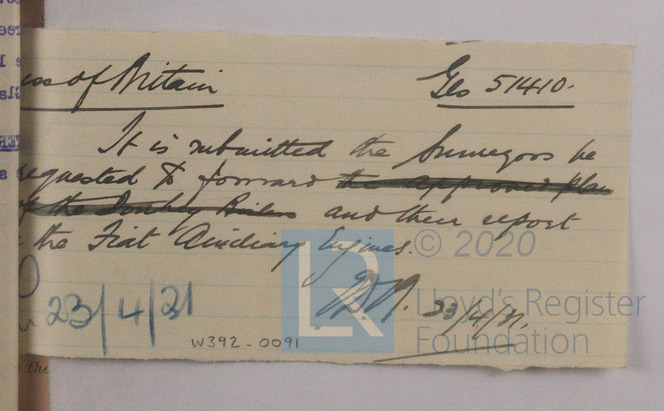 ess of Britain
Gls 51410.
It is submitted the Surveyors be
requested to forward the approved plan
of the Donkey Boilers and their report
the Fiat Auxiliary Engines.
23/4/31.
23/4/21
W392-0091
© 2020
LR
Lloyd's Register
Foundation
the